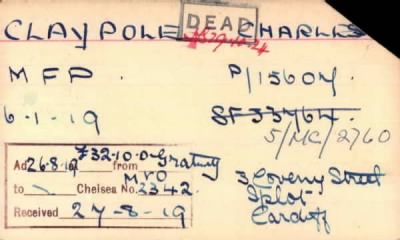 DEAD
CLAYPOLE CHARLES
29-10-24
MFP. P/15607.
6-1-19 SF33764.
5/MC/2760
£32-10-0 Gratuity
Ad 26-8-19 from MVO
to Chelsea No. 3342.
Received 27-8-19
3 Coveny Street
Splot
Cardiff